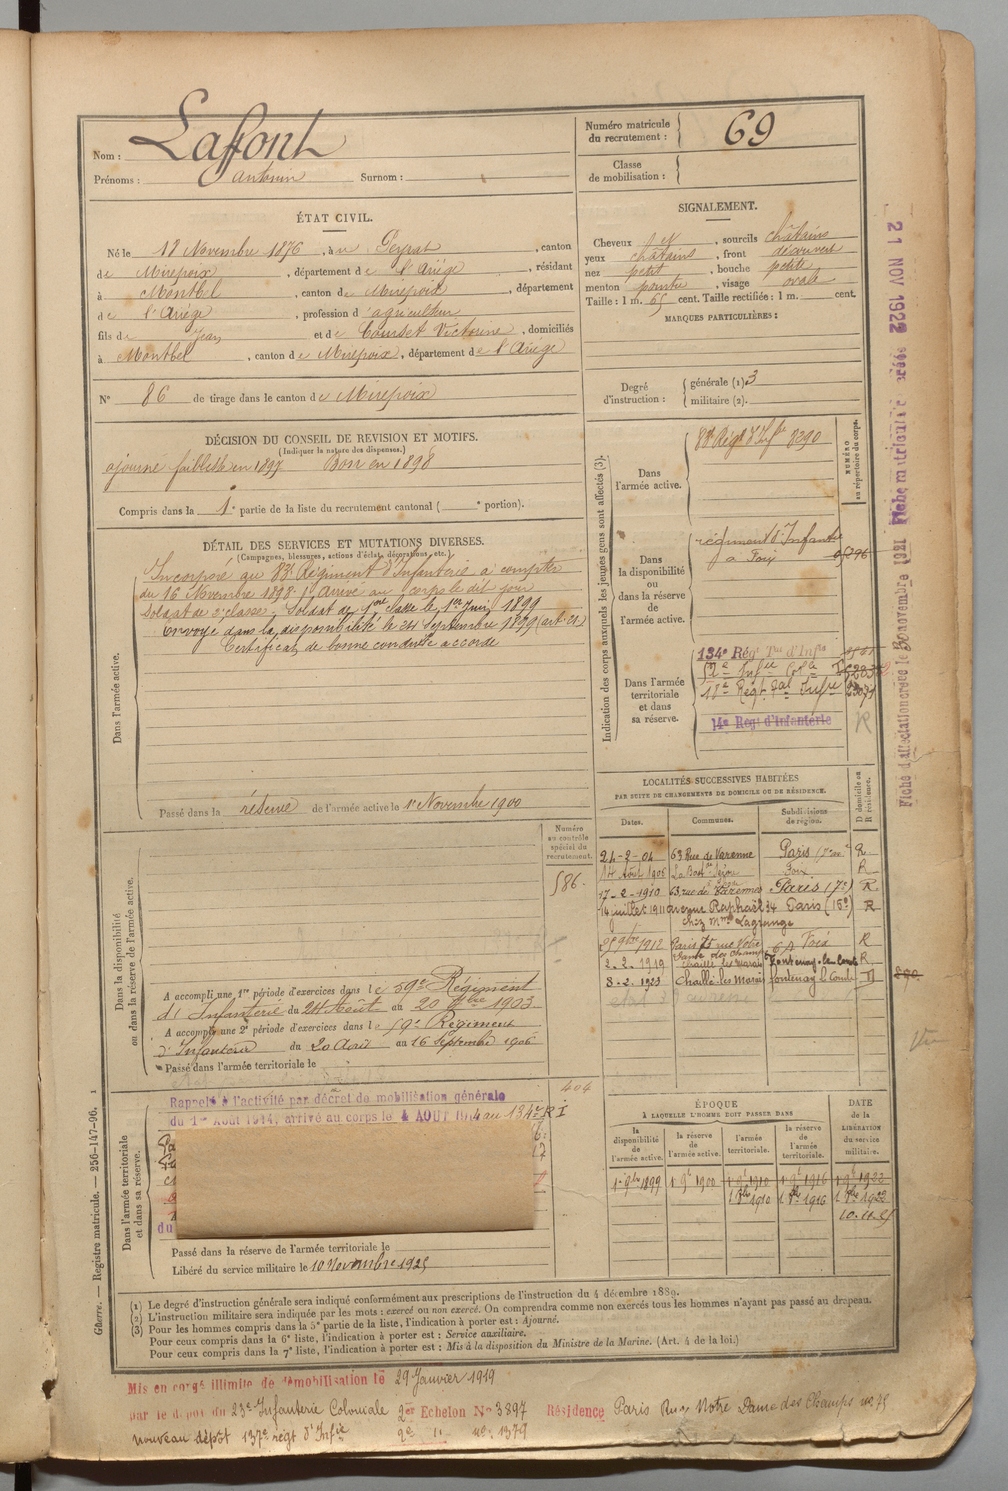 Nom : Lafont
Prénoms : Antonin Surnom :
Numéro matricule du recrutement : 69
Classe de mobilisation :
ÉTAT CIVIL.
Né le 12 Novembre 1876, à Peyrat, canton
de Mirepoix, département de l'Ariège, résidant
à Montbel, canton de Mirepoix, département
de l'Ariège, profession d'agriculteur
fils de Jean et de Courset Victorine, domiciliés
à Montbel, canton de Mirepoix, département de l'Ariège
N° 86 de tirage dans le canton de Mirepoix
SIGNALEMENT.
Cheveux et, sourcils châtains
yeux châtains, front découvert
nez petit, bouche petite
menton pointu, visage ovale
Taille : 1 m. 65 cent. Taille rectifiée : 1 m. cent.
MARQUES PARTICULIÈRES :
Degré d'instruction : générale (1). 3
militaire (2).
DÉCISION DU CONSEIL DE REVISION ET MOTIFS.
(Indiquer la nature des dispenses.)
ajourné faiblesse en 1897 Bon en 1898
Compris dans la 1e partie de la liste du recrutement cantonal ( e portion).
DÉTAIL DES SERVICES ET MUTATIONS DIVERSES.
(Campagnes, blessures, actions d'éclat, décorations, etc.)
Dans l'armée active.
Incorporé au 88e Régiment d'Infanterie à compter
du 16 Novembre 1898. Arrivé au corps le dit jour
Soldat de 2e classe. Soldat de 1ère classe le 1er Juin 1899
Envoyé dans la disponibilité le 24 Septembre 1899 (art. 21)
Certificat de bonne conduite accordé
Passé dans la réserve de l'armée active le 1er Novembre 1900
Indication des corps auxquels les jeunes gens sont affectés (3).
NUMÉRO au répertoire du corps.
Dans l'armée active.
88e Régt d'Infie 8290
Dans la disponibilité ou dans la réserve de l'armée active.
régiment d'Infanterie
à Foix
Dans l'armée territoriale et dans sa réserve.
134e Rég Ter d'Infie
52e Infie Cole
18e Régt Infie
14e Régt d'Infanterie
R
LOCALITÉS SUCCESSIVES HABITÉES
PAR SUITE DE CHANGEMENTS DE DOMICILE OU DE RÉSIDENCE.
Dates. Communes. Subdivisions de région. D domicile ou R résidence.
24-2-04 63 Rue de Varenne Paris R
14 Août 1906 La Bastide Foix R
17-2-1910 63, rue de Varennes Paris (7e) R.
14 juillet 1911 avenue Raphaël 34 Paris (16e) R
chez Mme Lagrange
1912 Paris 75 rue Notre Dame des Champs Foix R
2-2-1919 Chaillé les Marais Fontenay-le-Comte R
8-2-1923 Chaillé-les-Marais Fontenay le Comte D
Dans la disponibilité ou dans la réserve de l'armée active.
Numéro au contrôle spécial du recrutement.
586.
A accompli une 1re période d'exercices dans le 59e Régiment
d'Infanterie du 24 Août au 20 7bre 1903
A accompli une 2e période d'exercices dans le 59e Régiment
d'Infanterie du 20 Août au 16 Septembre 1906
Passé dans l'armée territoriale le
Dans l'armée territoriale et dans sa réserve.
404
Rappelé à l'activité par décret de mobilisation générale
du 1er Août 1914, arrivé au corps le 4 AOUT 1914 au 134e R I
du
Passé dans la réserve de l'armée territoriale le
Libéré du service militaire le 10 Novembre 1925
ÉPOQUE
À LAQUELLE L'HOMME DOIT PASSER DANS
la disponibilité de l'armée active. la réserve de l'armée active. l'armée territoriale. la réserve de l'armée territoriale.
DATE de la LIBÉRATION du service militaire.
1er 9bre 1899 1er 9bre 1900 1er 9bre 1910 1er 9bre 1916 1er 9bre 1923
1er 8bre 1910 1er 8bre 1916 1er 8bre 1922
10.11.25
(1) Le degré d'instruction générale sera indiqué conformément aux prescriptions de l'instruction du 4 décembre 1889.
(2) L'instruction militaire sera indiquée par les mots : exercé ou non exercé. On comprendra comme non exercés tous les hommes n'ayant pas passé au drapeau.
(3) Pour les hommes compris dans la 5e partie de la liste, l'indication à porter est : Ajourné.
Pour ceux compris dans la 6e liste, l'indication à porter est : Service auxiliaire.
Pour ceux compris dans la 7e liste, l'indication à porter est : Mis à la disposition du Ministre de la Marine. (Art. 4 de la loi.)
Mis en congé illimité de démobilisation le 29 Janvier 1919
par le dépôt du 23e Infanterie Coloniale 2e Echelon N° 3897 Résidence Paris Rue Notre Dame des Champs no 75
nouveau dépôt 137e régt d'Infie 2e " no 1379
Guerre. — Registre matricule. — 256-147-96.
21 NOV 1922 Fiche matriculaire créée
Fiche d'affectation créée le 30 novembre 1921